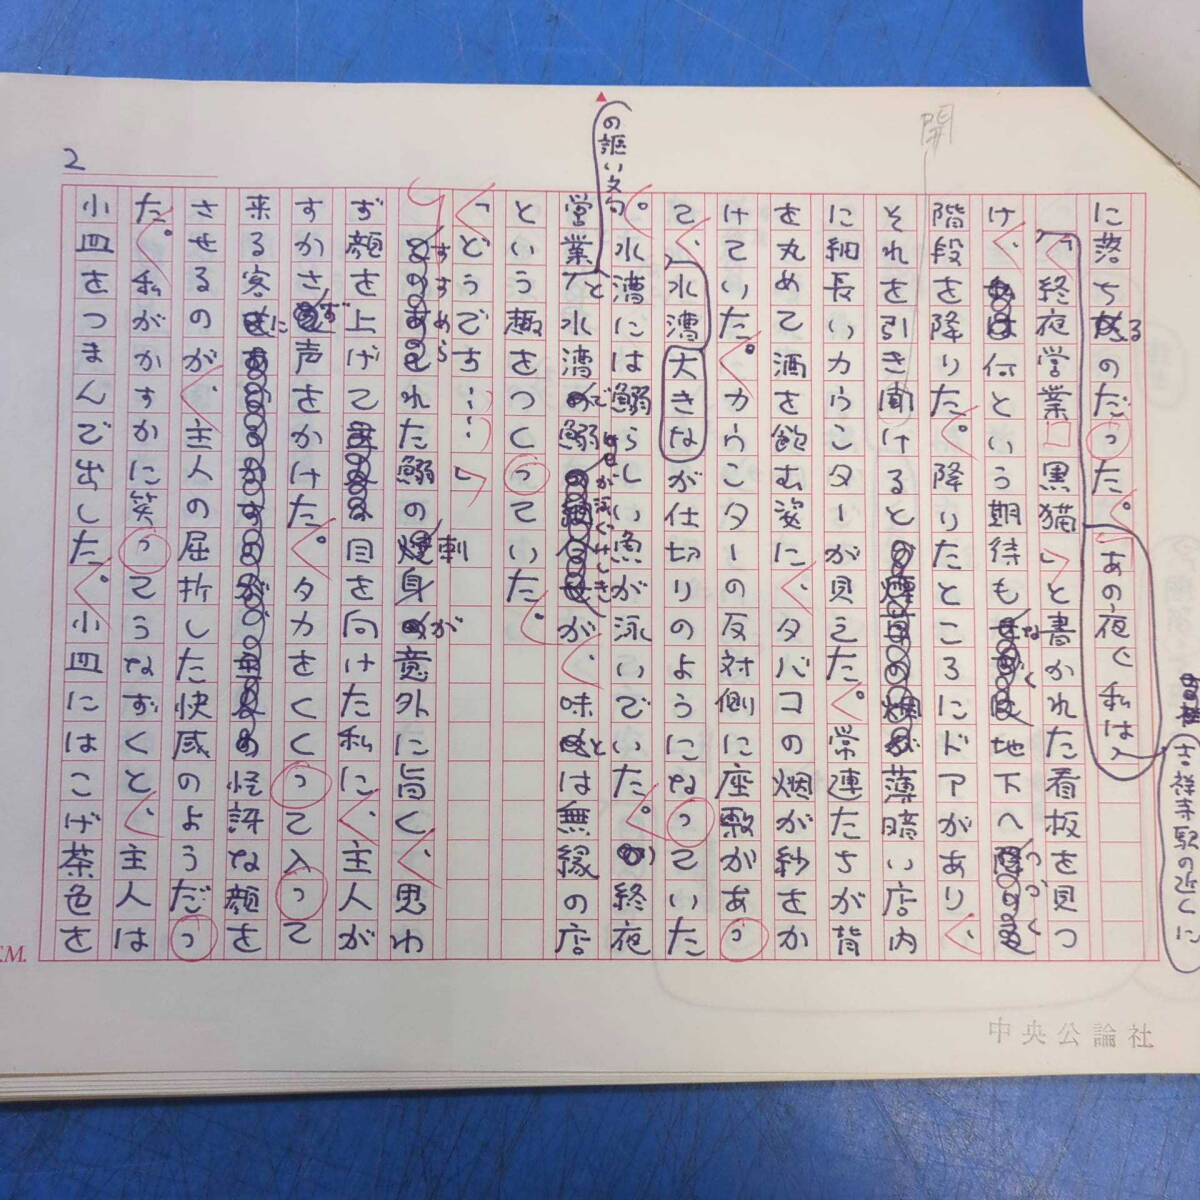 2
開
に落ちるのだった。あの夜く私は、
吉祥寺駅の近くに
「終夜営業 黒猫」と書かれた看板を見つ
け、何という期待もなく地下へつづく
階段を降りた。降りたところにドアがあり、
それを引き開けると薄暗い店内
に細長いカウンターが見えた。常連たちが背
を丸めて酒を飲む姿に、タバコの烟が紗をか
けていた。カウンターの反対側に座敷があっ
て、大きな水漕が仕切りのようになっていた
。水漕には鰯らしい魚が泳いでいた。終夜
営業の謳い文句と水漕で鰯が泳ぐけしきが、味とは無縁の店
という趣をつくっていた。
「どうでち……」
すすめられた鰯の刺身が意外に旨く、思わ
ず顔を上げて目を向けた私に、主人が
すかさず声をかけた。タカをくくって入って
来る客に怪訝な顔を
させるのが、主人の屈折した快感のようだっ
た。私がかすかに笑ってうなずくと、主人は
小皿をつまんで出した。小皿にはこげ茶色を
中央公論社